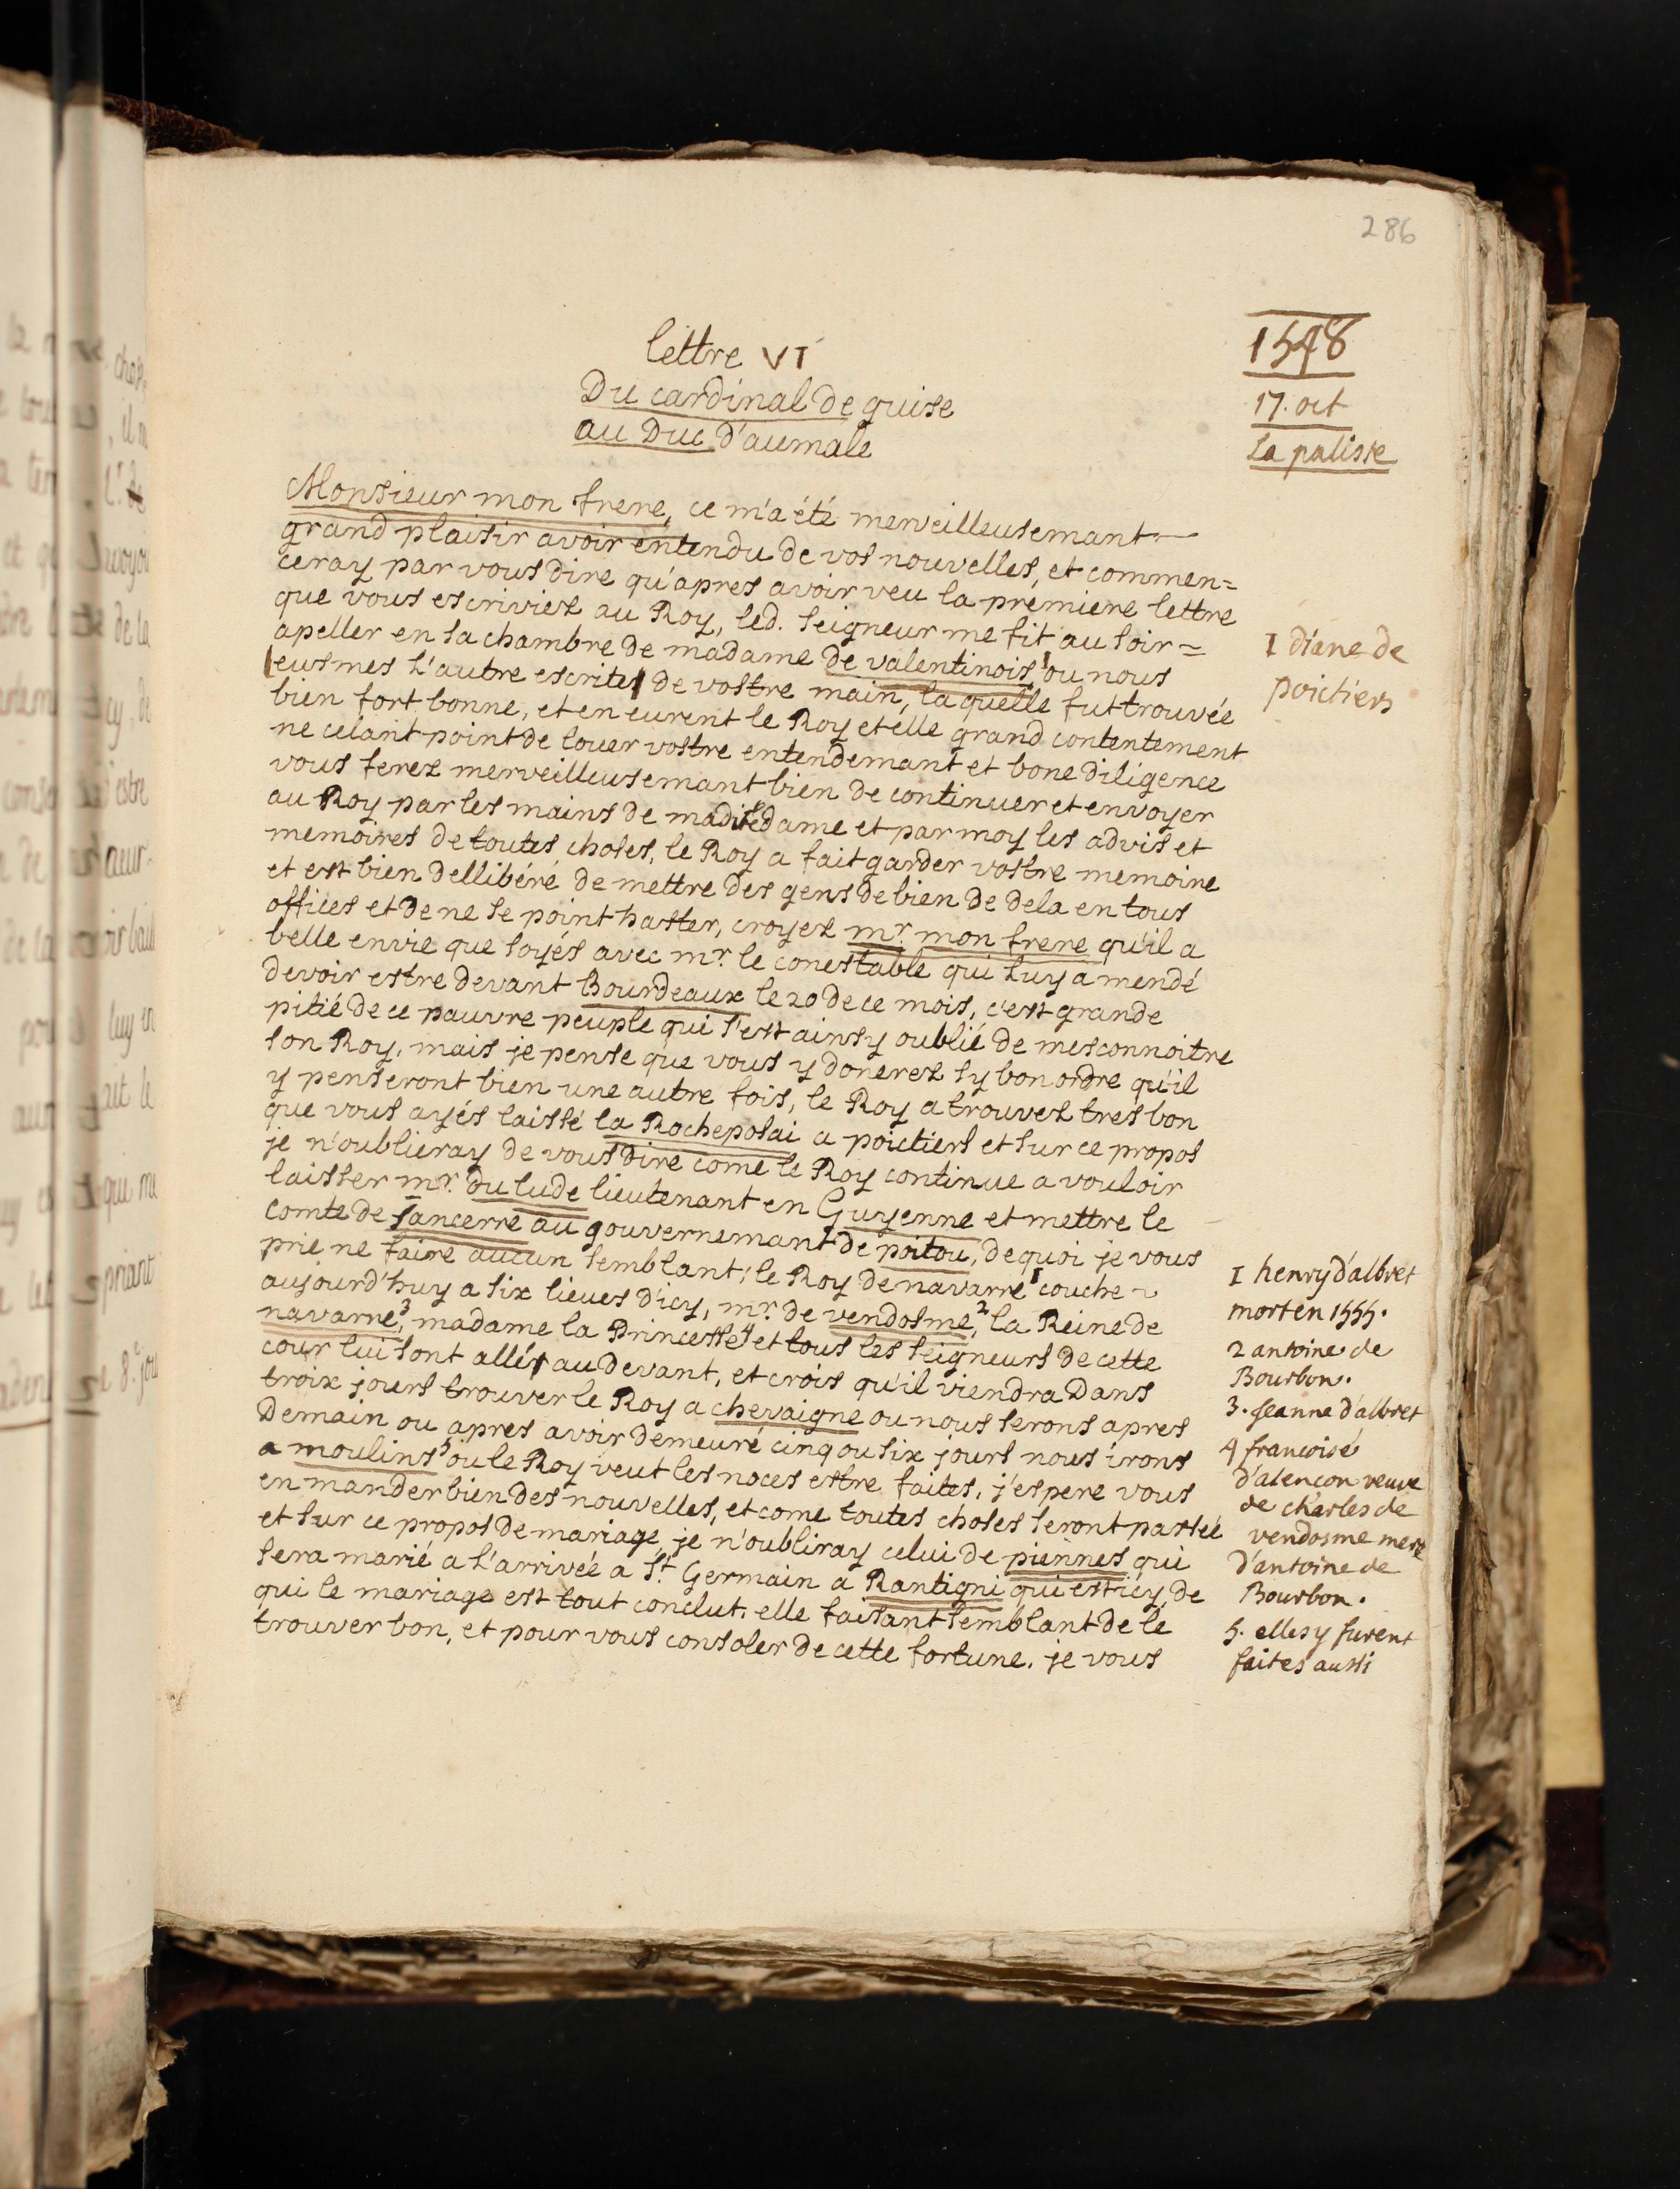 286
lettre VI
Du cardinal de guise
au Duc d'aumale
1548
17. oct
La palisse
Monsieur mon frere, ce m'a été merveilleusemant
grand plaisir avoir entendu de vos nouvelles, et commen=
ceray par vous dire qu'apres avoir veu la premiere lettre
que vous escriviez au Roy, led. seigneur me fit au soir =
apeller en sa chambre de madame de valentinois,1 ou nous
eusmes l'autre escrite de vostre main, laquelle fut trouvée
bien fort bonne, et en eurent le Roy et elle grand contentement
ne celant point de louer vostre entendemant et bone diligence
vous ferez merveilleusemant bien de continuer et envoyer
au Roy par les mains de madite dame et par moy les advis et
memoires de toutes choses, le Roy a fait garder vostre memoire
et est bien dellibéré de mettre des gens de bien de dela en tous
offices et de ne se point haster, croyez mr. mon frere qu'il a
belle envie que soyés avec mr. le conestable qui luy a mendé
devoir estre devant Bourdeaux le 20 de ce mois, c'est grande
pitié de ce pauvre peuple qui s'est ainsy oublié de mesconnoitre
son Roy, mais je pense que vous y donerez sy bon ordre qu'il
y penseront bien une autre fois, le Roy a trouvez tres bon
que vous ayés laissé la Rocheposai a poictiers et sur ce propos
je n'oublieray de vous dire come le Roy continue a vouloir
laisser mr. du lude lieutenant en Guyenne et mettre le
comte de sancerre au gouvernemant de poitou, de quoi je vous
prie ne faire aucun semblant; le Roy de navarre1 couche
aujourd'huy a six lieues d'icy, mr. de vendosme,2 la Reine de
navarre,3 madame la Princesse4 et tous les seigneurs de cette
cour lui sont allés au devant, et crois qu'il viendra Dans
troix jours trouver le Roy a chevaigne ou nous serons apres
Demain ou apres avoir demeuré cinq ou six jours nous irons
a moulins5 ou le Roy veut les noces estre faites, j'espere vous
en mander bien des nouvelles, et come toutes choses seront passée
et sur ce propos de mariage, je n'oubliray celui de piennes qui
sera marié a l'arrivée a St. Germain a Rantigni qui est icy, de
qui le mariage est tout conclut. elle faisant semblant de le
trouver bon, et pour vous consoler de cette fortune. je vous
I diane de
poictiers
I henry d'albret
mort en 1555.
2 antoine de
Bourbon.
3. Jeanne d'albret
4 francoise
d'alencon veuve
de charles de
vendosme mere
d'antoine de
Bourbon.
5. elles y furent
faites aussi